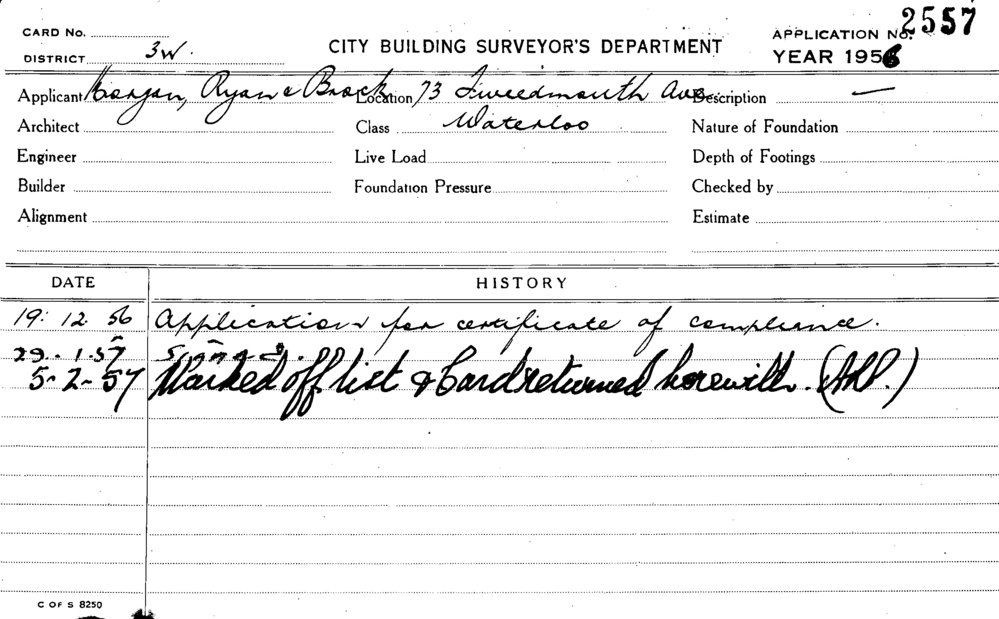 CARD No.
DISTRICT 3W.
CITY BUILDING SURVEYOR'S DEPARTMENT
APPLICATION No. 2557
YEAR 1956
Applicant Morgan, Ryan & Brock Location 73 Tweedmouth Ave. Description —
Architect Class Waterloo Nature of Foundation
Engineer Live Load Depth of Footings
Builder Foundation Pressure Checked by
Alignment Estimate
DATE HISTORY
19. 12. 56 Application for certificate of compliance.
29. 1. 57 Signed.
5-2-57 Marked off list & Card returned herewith.
C OF S 8250